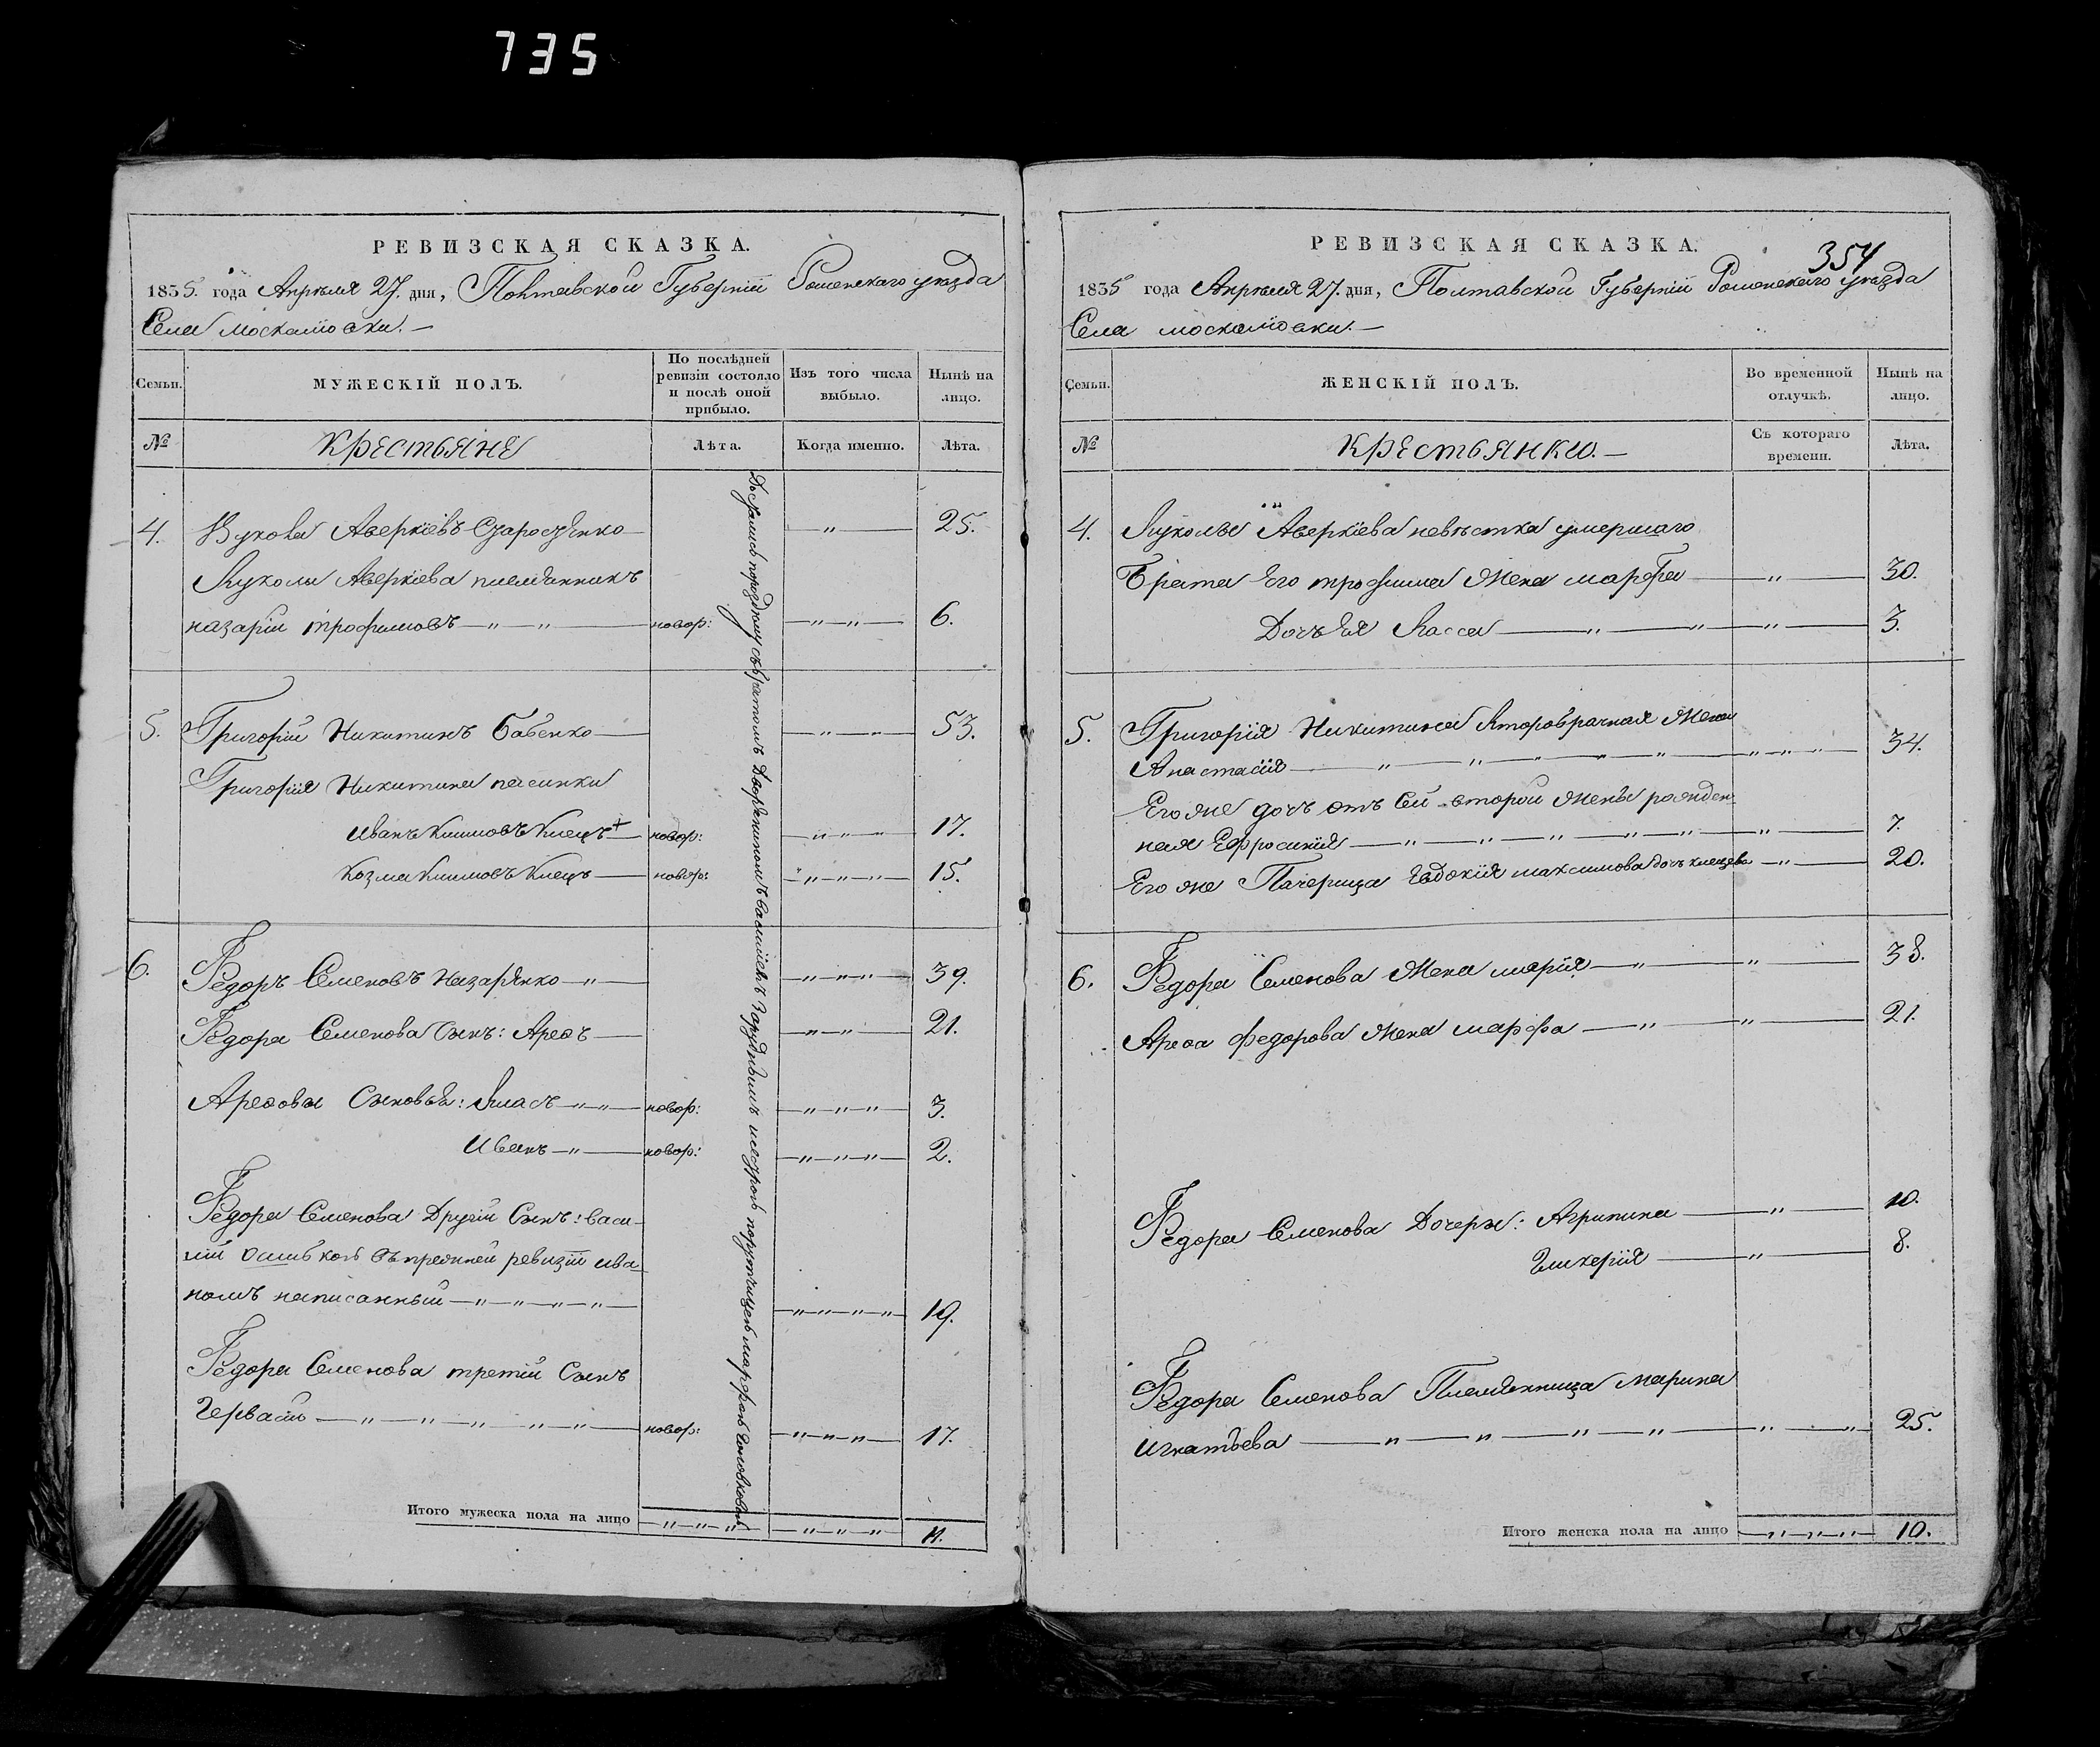 735
РЕВИЗСКАЯ СКАЗКА.
1835. года Апреля 27. дня, Полтавской Губерніи Роменскаго уезда
Села москалiовки. —
Семьи.
МУЖЕСКІЙ ПОЛЪ.
По послѣдней ревизіи состояло и послѣ оной прибыло.
Изъ того числа выбыло.
Нынѣ на лицо.
№
Крестьяне
Лѣта.
Когда именно.
Лѣта.
4. Аверкіевъ — " — 25.
Аверкіева племянникъ
назарiи трофимовъ — " — " — новор: — " — " — 6.
5. Григорiй Никитинъ Бабенко — — " — " — 53.
Григорiя Никитина пасинки
Иванъ Климовъ Клецъ + — новор: — " — " — 17.
Козма Климовъ Клецъ — новор: — " — " — " — 15.
6. Федоръ Семеновъ Назаренко — " — — " — " — " — 39.
Федора Семенова Сынъ: — — " — " — 21.
Сыновья: Власъ — " — " — новор: — " — " — " — 3.
Иванъ — " — новор: — " — " — " — 2.
Федора Семенова Другiй Сынъ: Васи-
лiй ошибкою въ прежней ревизiи Ива-
номъ написанный — " — " — " — " — — " — " — " — " — 19.
Федора Семенова третiй Сынъ
Гервасiи — " — " — " — " — " — новор: — " — " — " — 17.
Итого мужеска пола на лицо — " — " — " — " — " — " — 11.
354
РЕВИЗСКАЯ СКАЗКА.
1835 года Апреля 27. дня, Полтавской Губерніи Роменскаго уезда
Села москалiовки. —
Семьи.
ЖЕНСКІЙ ПОЛЪ.
Во временной отлучкѣ.
Нынѣ на лицо.
№
Крестьянки. —
Съ котораго времени.
Лѣта.
4. Аверкіева невѣстка умершаго
Брата Его трофима Жена марфа — " — 30.
Дочь Ея Васса — " — " — " — 3.
5. Григорiя Никитина Второбрачная Жена
Анастасiя — " — " — " — " — " — " — " — " — 34.
Его же дочь отъ Сей второй жены рожден-
ная Ефросинiя — " — " — " — " — " — " — 7.
Его же Падчерица Евдокiя максимова дочь клецева — " — 20.
6. Федора Семенова Жена марiя — " — " — 38.
федорова Жена марфа — " — " — 21.
Федора Семенова Дочери: Агрипина — " — 10.
Гликерiя — " — 8.
Федора Семенова Племянница марина
игнатьева — " — " — " — " — " — " — 25.
Итого женска пола на лицо — " — " — " — 10.